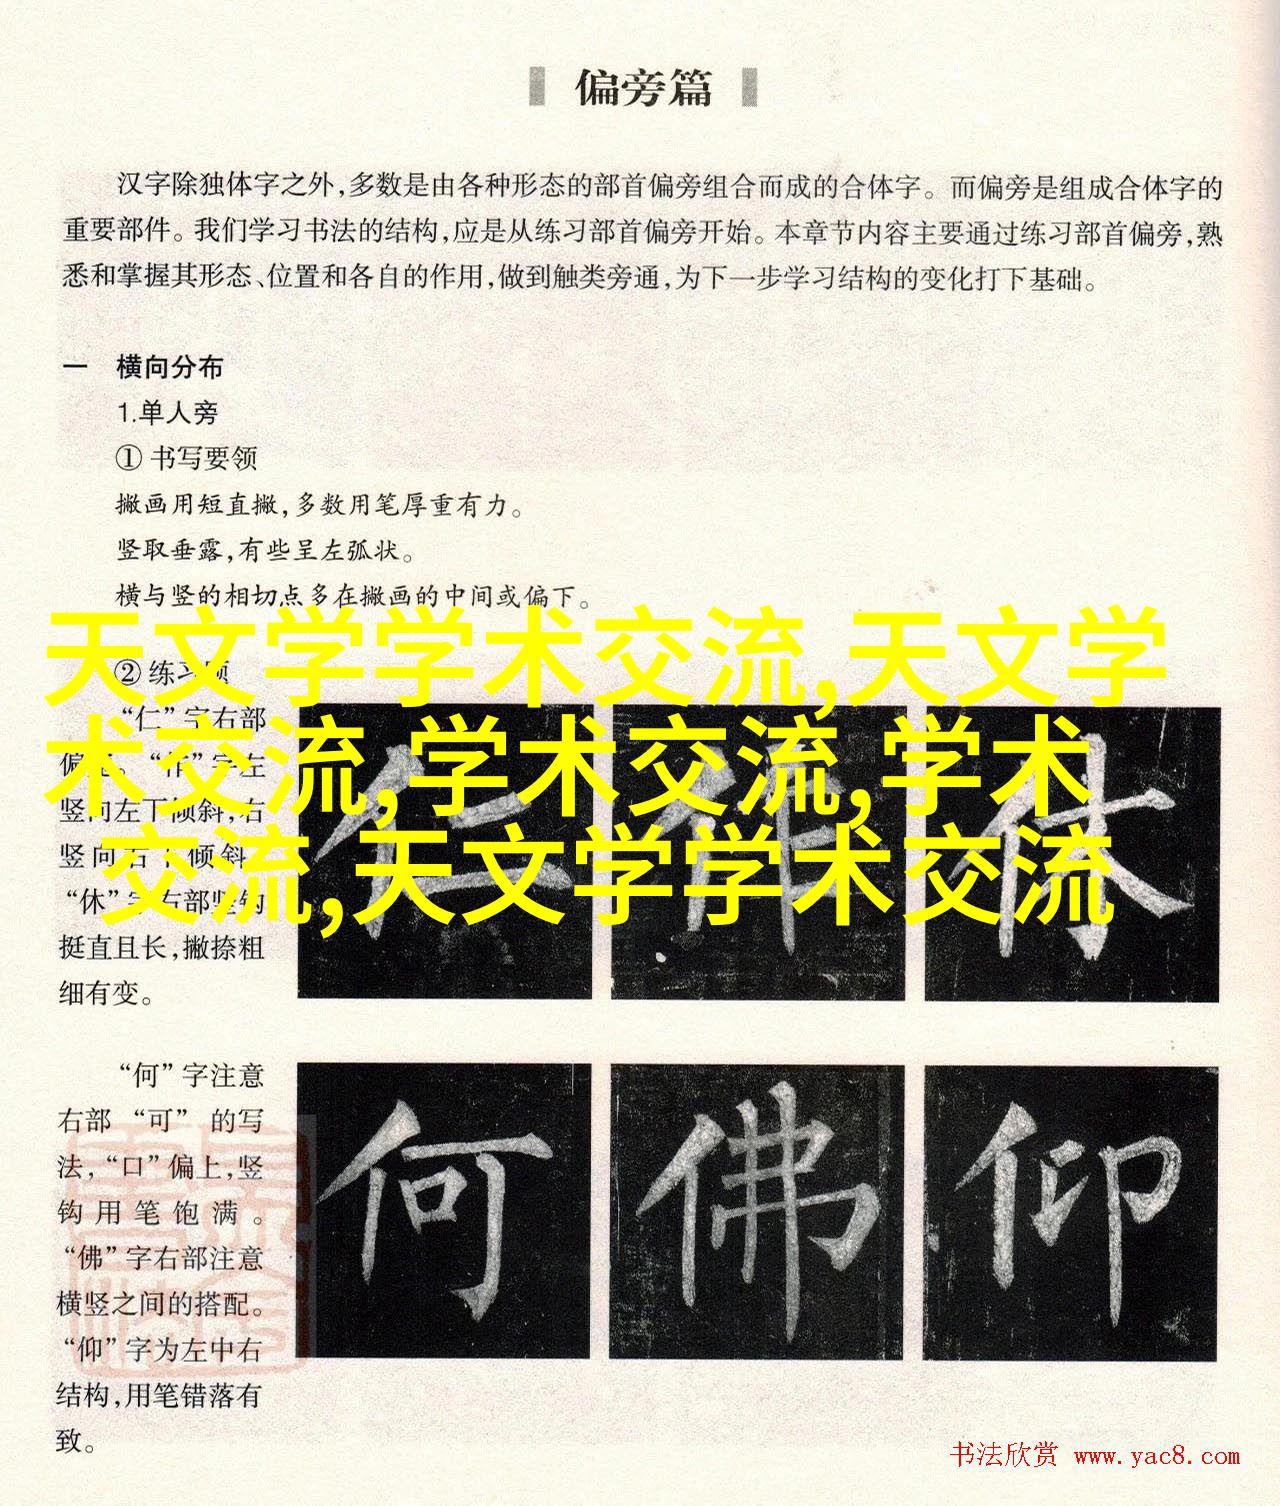 偏旁篇
汉字除独体字之外,多数是由各种形态的部首偏旁组合而成的合体字。而偏旁是组成合体字的
重要部件。我们学习书法的结构,应是从练习部首偏旁开始。本章节内容主要通过练习部首偏旁,熟
悉和掌握其形态、位置和各自的作用,做到触类旁通,为下一步学习结构的变化打下基础。
一 横向分布
1.单人旁
① 书写要领
撇画用短直撇,多数用笔厚重有力。
竖取垂露,有些呈左弧状。
横与竖的相切点多在撇画的中间或偏下。
天文学学术交流,天文学
术交流,学术交流,学术
交流,天文学学术交流
② 练习题
“仁”字右部
竖向左下倾斜,右
竖向右 倾斜
“休”字右部竖钩
挺直且长,撇捺粗
细有变。
仁 作 休
“何”字注意
右部“可”的写
法,“口”偏上,竖
钩用笔饱满。
“佛”字右部注意
横竖之间的搭配。
“仰”字为左中右
结构,用笔错落有
致。
何 佛 仰
书法欣赏 www.yac8.com